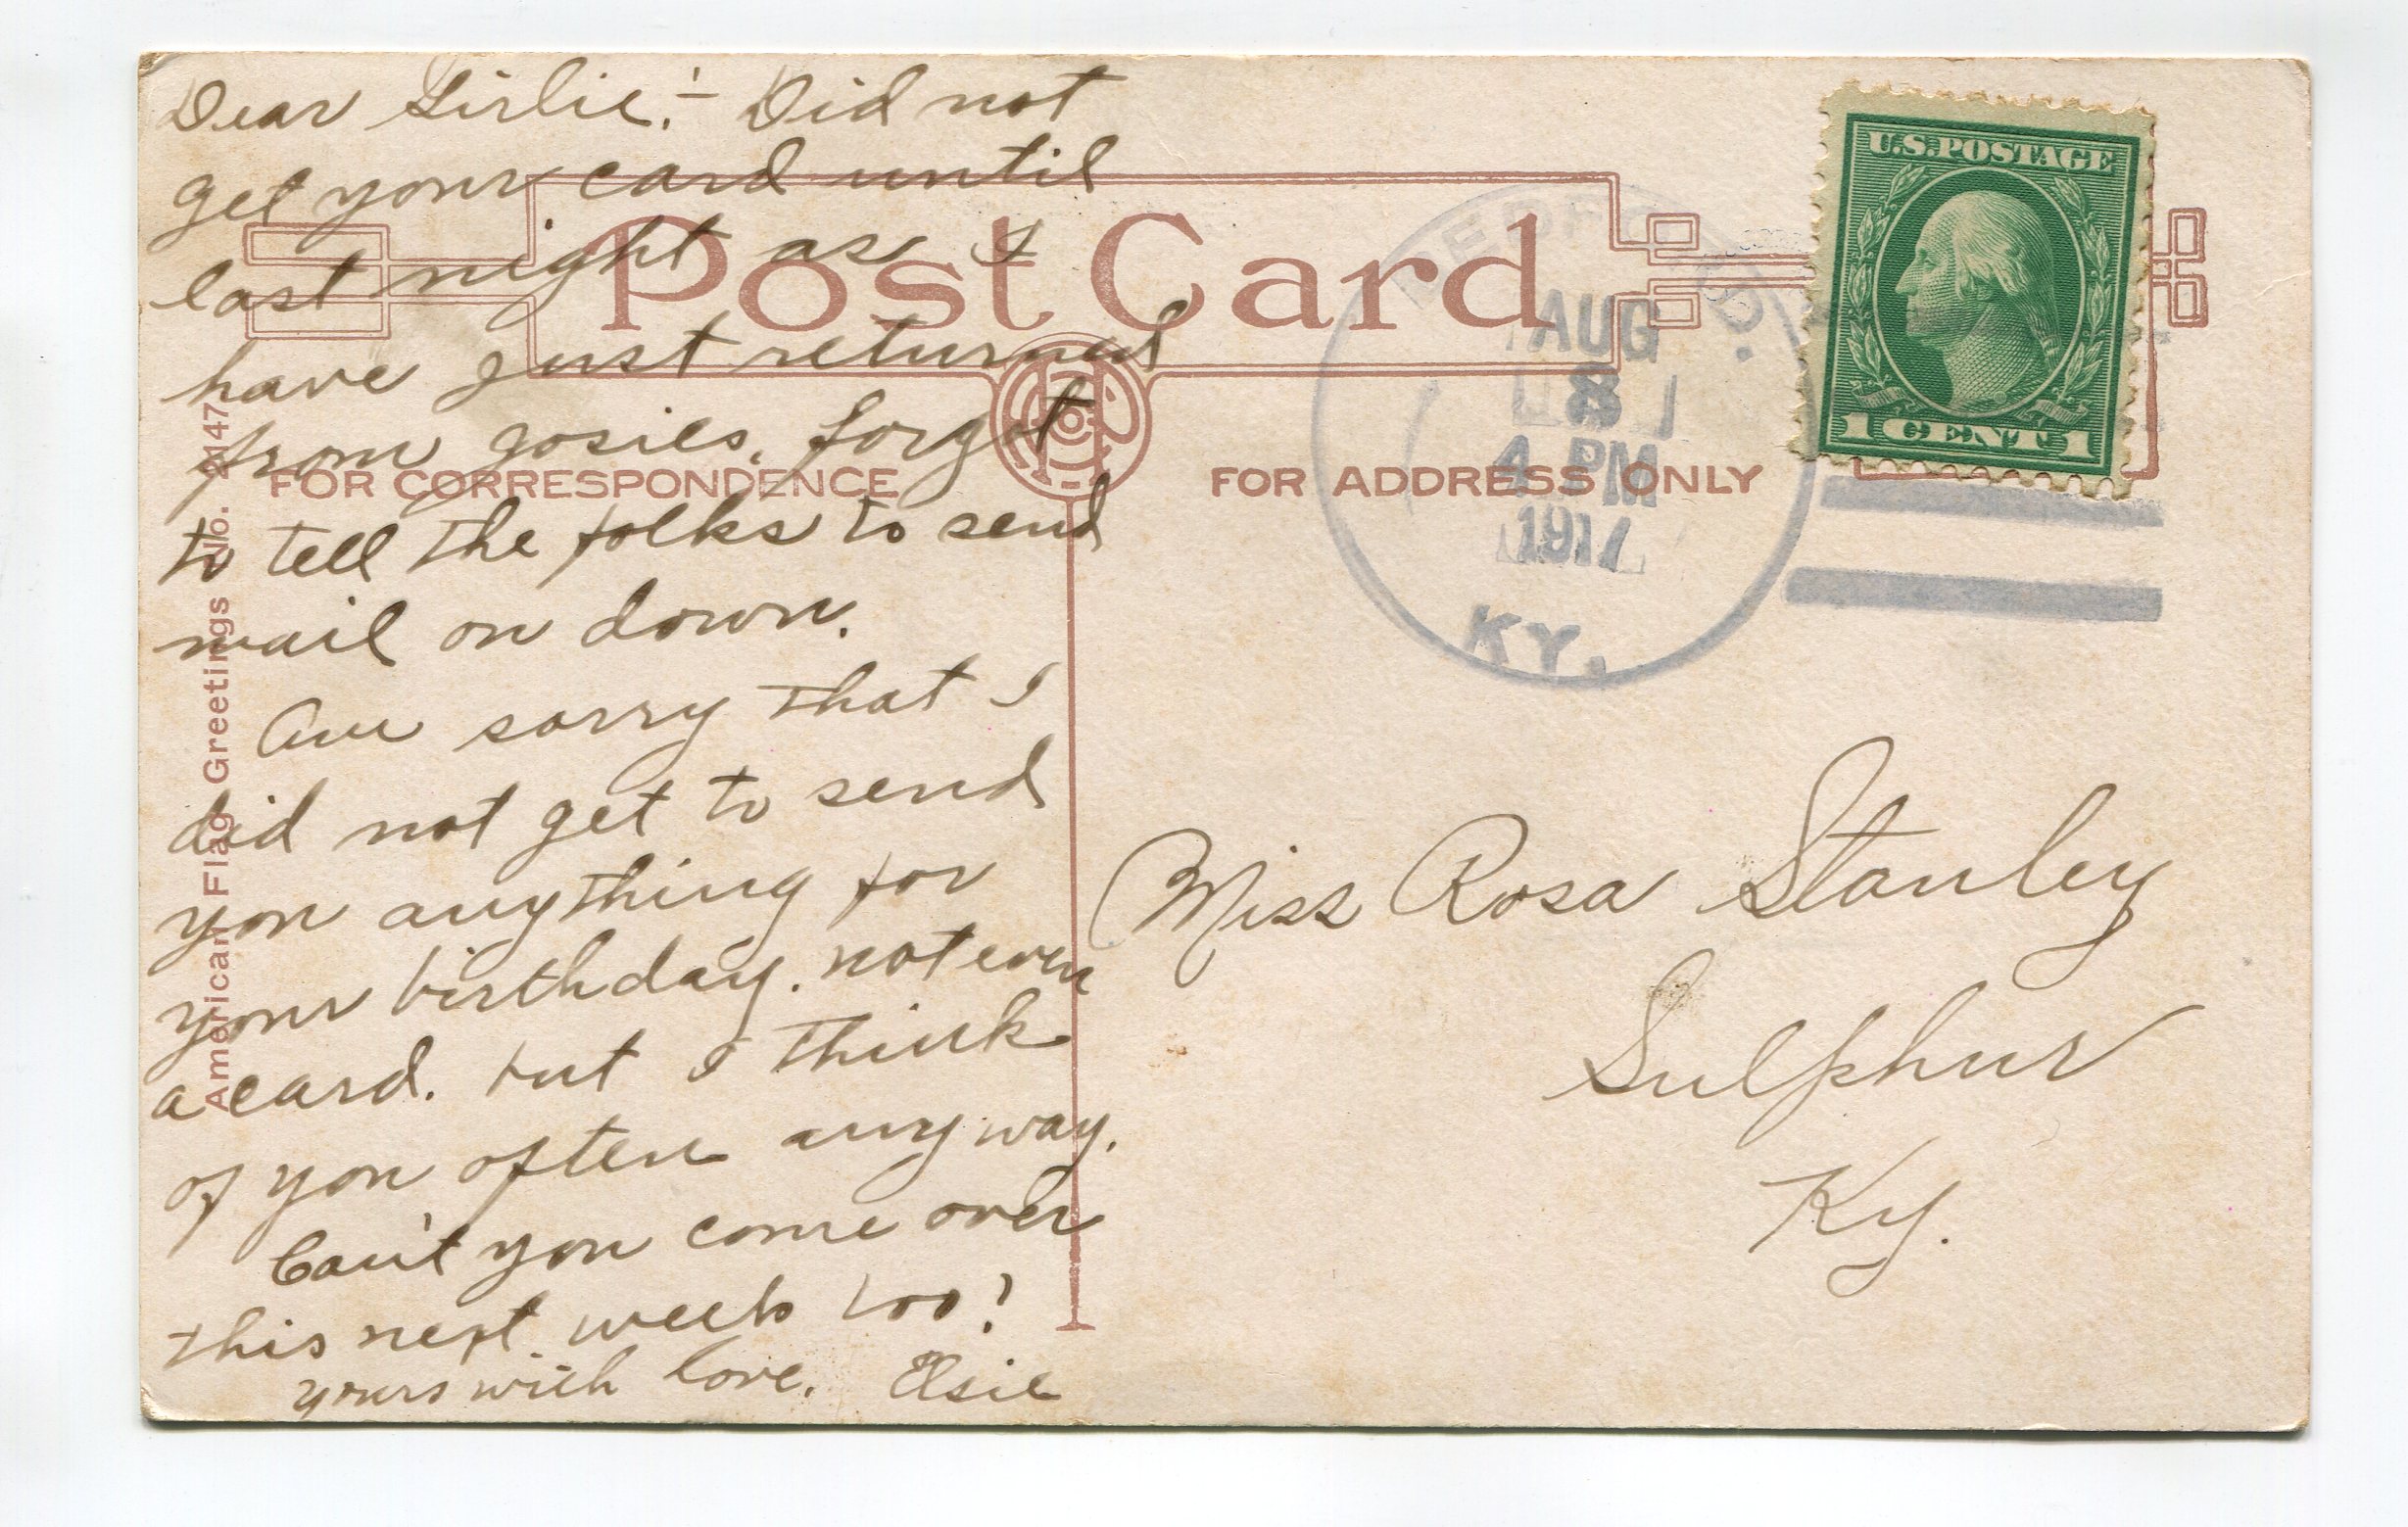 Dear Girlie:- Did not
get your card until
last night as I
have just returned
from Josies. forgot
to tell the folks to send
mail on down.
Am sorry that I
did not get to send
you anything for
your birthday. not even
a card. but I think
of you often anyway.
Can't you come over
this next week too?
yours with love. Elsie
Post Card
FOR CORRESPONDENCE
FOR ADDRESS ONLY
American Flag Greetings No. 2147
BEDFORD.
AUG
8
4 PM
1917
KY.
U.S. POSTAGE
1 CENT 1
Miss Rosa Stanley
Sulphur
Ky.